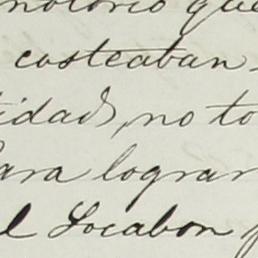 notorio que
costeaban
tidad, no to
Para lograr
el Locabon p